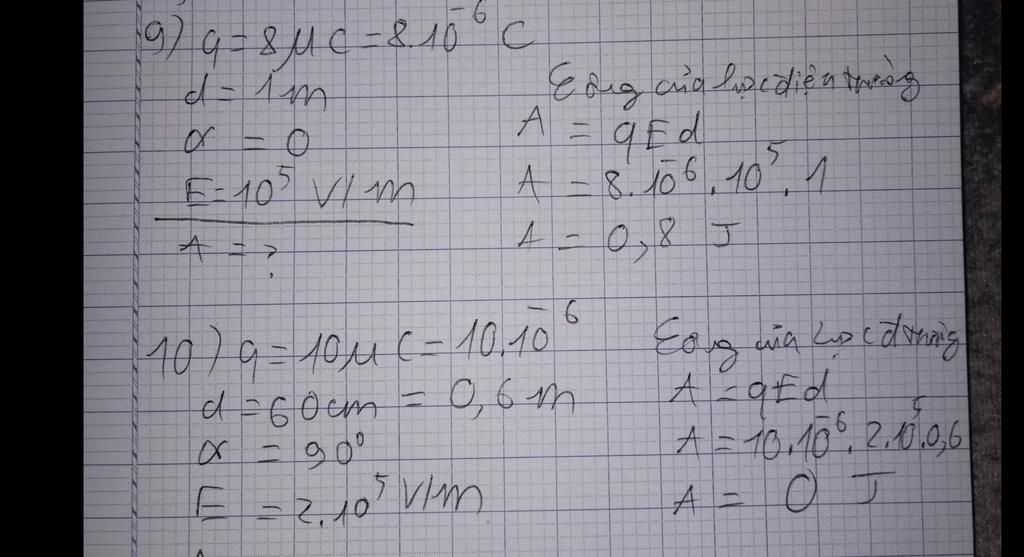 9) q = 8 μC = 8.10⁻⁶ C
d = 1m
α = 0
E = 10⁵ V/m
A = ?
Công của lực điện trường
A = qEd
A = 8.10⁻⁶.10⁵.1
A = 0,8 J
10) q = 10μC = 10.10⁻⁶
d = 60cm = 0,6m
α = 90⁰
E = 2.10⁵ V/m
Công của lực đ trường
A = qEd
A = 10.10⁻⁶.2.10⁵.0,6
A = 0 J